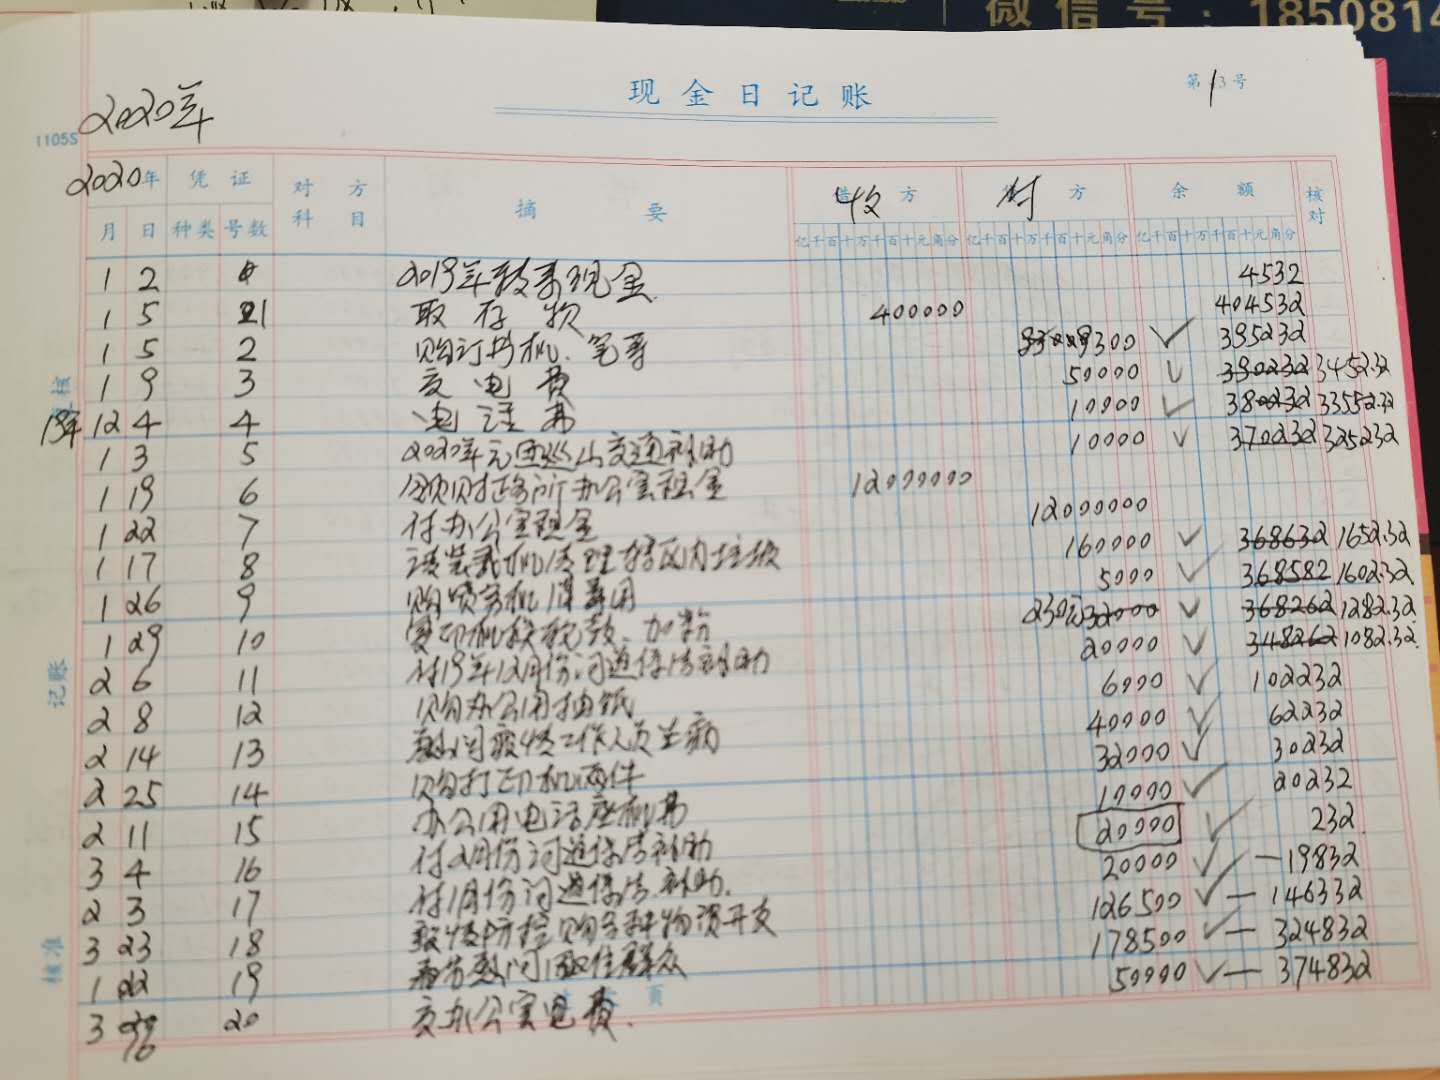 微信号:1850814
现金日记账
第 1 3号
2020年
1105S
2020年 凭证 对方科目 摘要 收 方 付 方 余额 核对
月 日 种类 号数 亿千百十万千百十元角分 亿千百十万千百十元角分 亿千百十万千百十元角分
1 2 2019年转来现金 4532
1 5 1 取存物 400000 404532
1 5 2 购订书机、笔等 9300 395232
1 9 3 交电费 50000 390232 3452.32
19年 12 4 4 电话费 10000 380232 3352.32
1 3 5 2020年元旦巡山交通补助 10000 370232 325232
1 19 6 领财政所办公室租金 12000000
1 22 7 付办公室租金 12000000
1 17 8 请装载机清理辖区内垃圾 160000 368632 1652.32
1 26 9 购喷雾机消毒用 5000 368582 1602.32
1 29 10 复印机换鼓、加粉 230元 32000 368262 1282.32
2 6 11 付19年12月份河道保洁补助 20000 348262 1082.32
2 8 12 购办公用抽纸 6000 102232
2 14 13 慰问疫情工作人员生病 40000 62232
2 25 14 购打印机两件 32000 30232
2 11 15 办公用电话座机费 10000 20232
3 4 16 付2月份河道保洁补助 20000 232
2 3 17 付1月份河道保洁补助. 20000 —19832
3 23 18 疫情防控购各种物资开支 126500 —146332
1 22 19 春节慰问群众 178500 —324832
3 20 交办公室电费. 50000 —374832
记账
核准